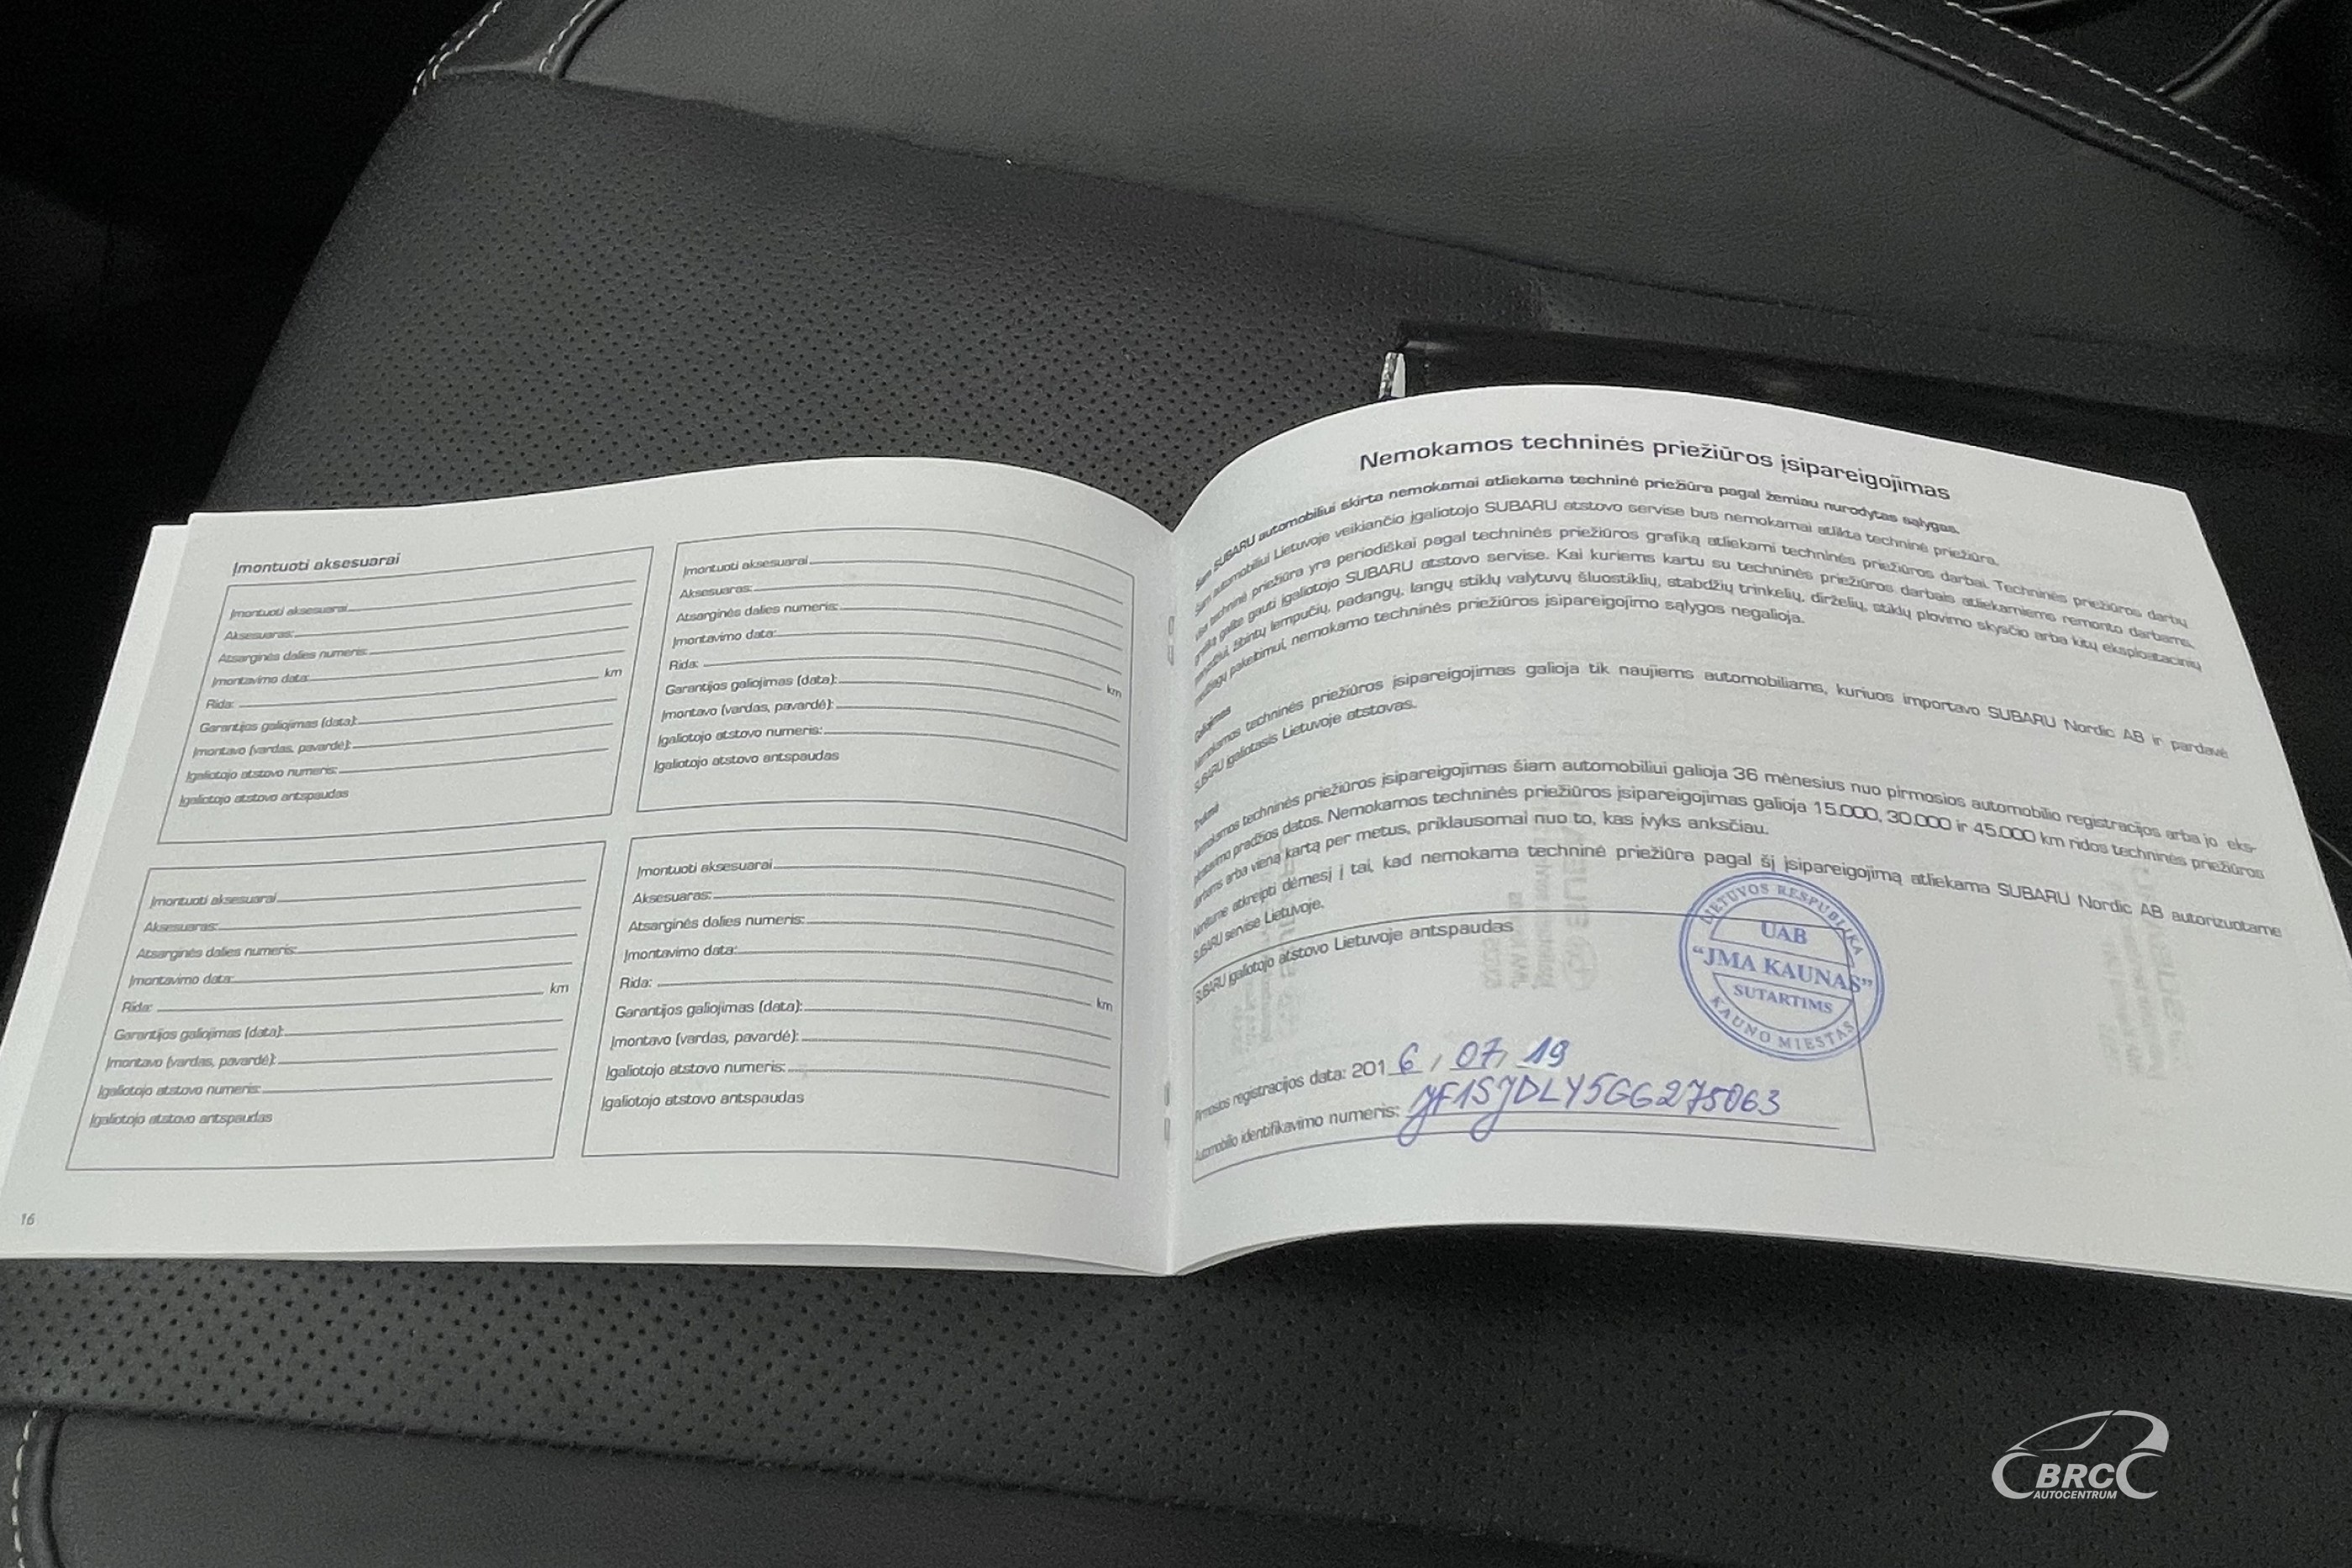 Įmontuoti aksesuarai
Įmontuoti aksesuarai
Aksesuaras:
Atsarginės dalies numeris:
Įmontavimo data:
Rida: km
Garantijos galiojimas (data):
Įmontavo (vardas, pavardė):
Įgaliotojo atstovo numeris:
Įgaliotojo atstovo antspaudas
Įmontuoti aksesuarai
Aksesuaras:
Atsarginės dalies numeris:
Įmontavimo data:
Rida: km
Garantijos galiojimas (data):
Įmontavo (vardas, pavardė):
Įgaliotojo atstovo numeris:
Įgaliotojo atstovo antspaudas
Įmontuoti aksesuarai
Aksesuaras:
Atsarginės dalies numeris:
Įmontavimo data:
Rida: km
Garantijos galiojimas (data):
Įmontavo (vardas, pavardė):
Įgaliotojo atstovo numeris:
Įgaliotojo atstovo antspaudas
Įmontuoti aksesuarai
Aksesuaras:
Atsarginės dalies numeris:
Įmontavimo data:
Rida: km
Garantijos galiojimas (data):
Įmontavo (vardas, pavardė):
Įgaliotojo atstovo numeris:
Įgaliotojo atstovo antspaudas
16
Nemokamos techninės priežiūros įsipareigojimas
Šiam SUBARU automobiliui skirta nemokamai atliekama techninė priežiūra pagal žemiau nurodytas sąlygas.
Šiam automobiliui Lietuvoje veikiančio įgaliotojo SUBARU atstovo servise bus nemokamai atlikta techninė priežiūra.
Visa techninė priežiūra yra periodiškai pagal techninės priežiūros grafiką atliekami techninės priežiūros darbai. Techninės priežiūros darbų
grafiką galite gauti įgaliotojo SUBARU atstovo servise. Kai kuriems kartu su techninės priežiūros darbais atliekamiems remonto darbams,
pavyzdžiui, žibintų lempučių, padangų, langų stiklų valytuvų šluostiklių, stabdžių trinkelių, dirželių, stiklų plovimo skysčio arba kitų eksploatacinių
medžiagų pakeitimui, nemokamo techninės priežiūros įsipareigojimo sąlygos negalioja.
Galiojimas
Nemokamos techninės priežiūros įsipareigojimas galioja tik naujiems automobiliams, kuriuos importavo SUBARU Nordic AB ir pardavė
SUBARU įgaliotasis Lietuvoje atstovas.
Trukmė
Nemokamos techninės priežiūros įsipareigojimas šiam automobiliui galioja 36 mėnesius nuo pirmosios automobilio registracijos arba jo eks-
ploatavimo pradžios datos. Nemokamos techninės priežiūros įsipareigojimas galioja 15.000, 30.000 ir 45.000 km ridos techninės priežiūros
darbams arba vieną kartą per metus, priklausomai nuo to, kas įvyks anksčiau.
Norėtume atkreipti dėmesį į tai, kad nemokama techninė priežiūra pagal šį įsipareigojimą atliekama SUBARU Nordic AB autorizuotame
SUBARU servise Lietuvoje.
SUBARU įgaliotojo atstovo Lietuvoje antspaudas
LIETUVOS RESPUBLIKA
UAB
"JMA KAUNAS"
SUTARTIMS
KAUNO MIESTAS
Pirmosios registracijos data: 2016, 07, 19
Automobilio identifikavimo numeris: JF1SJDLY5GG275063
BRC
AUTOCENTRUM